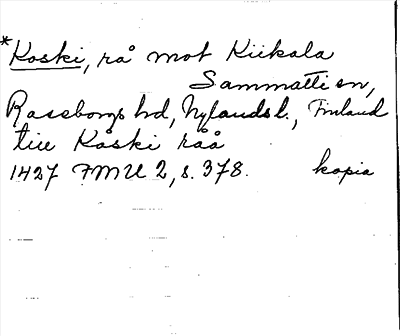 *Koski, rå mot Kiikala
Sammatti sn,
Raseborgs hd, Nylands l., Finland
till Kåski råå
1427 FMU 2, s. 378. kopia